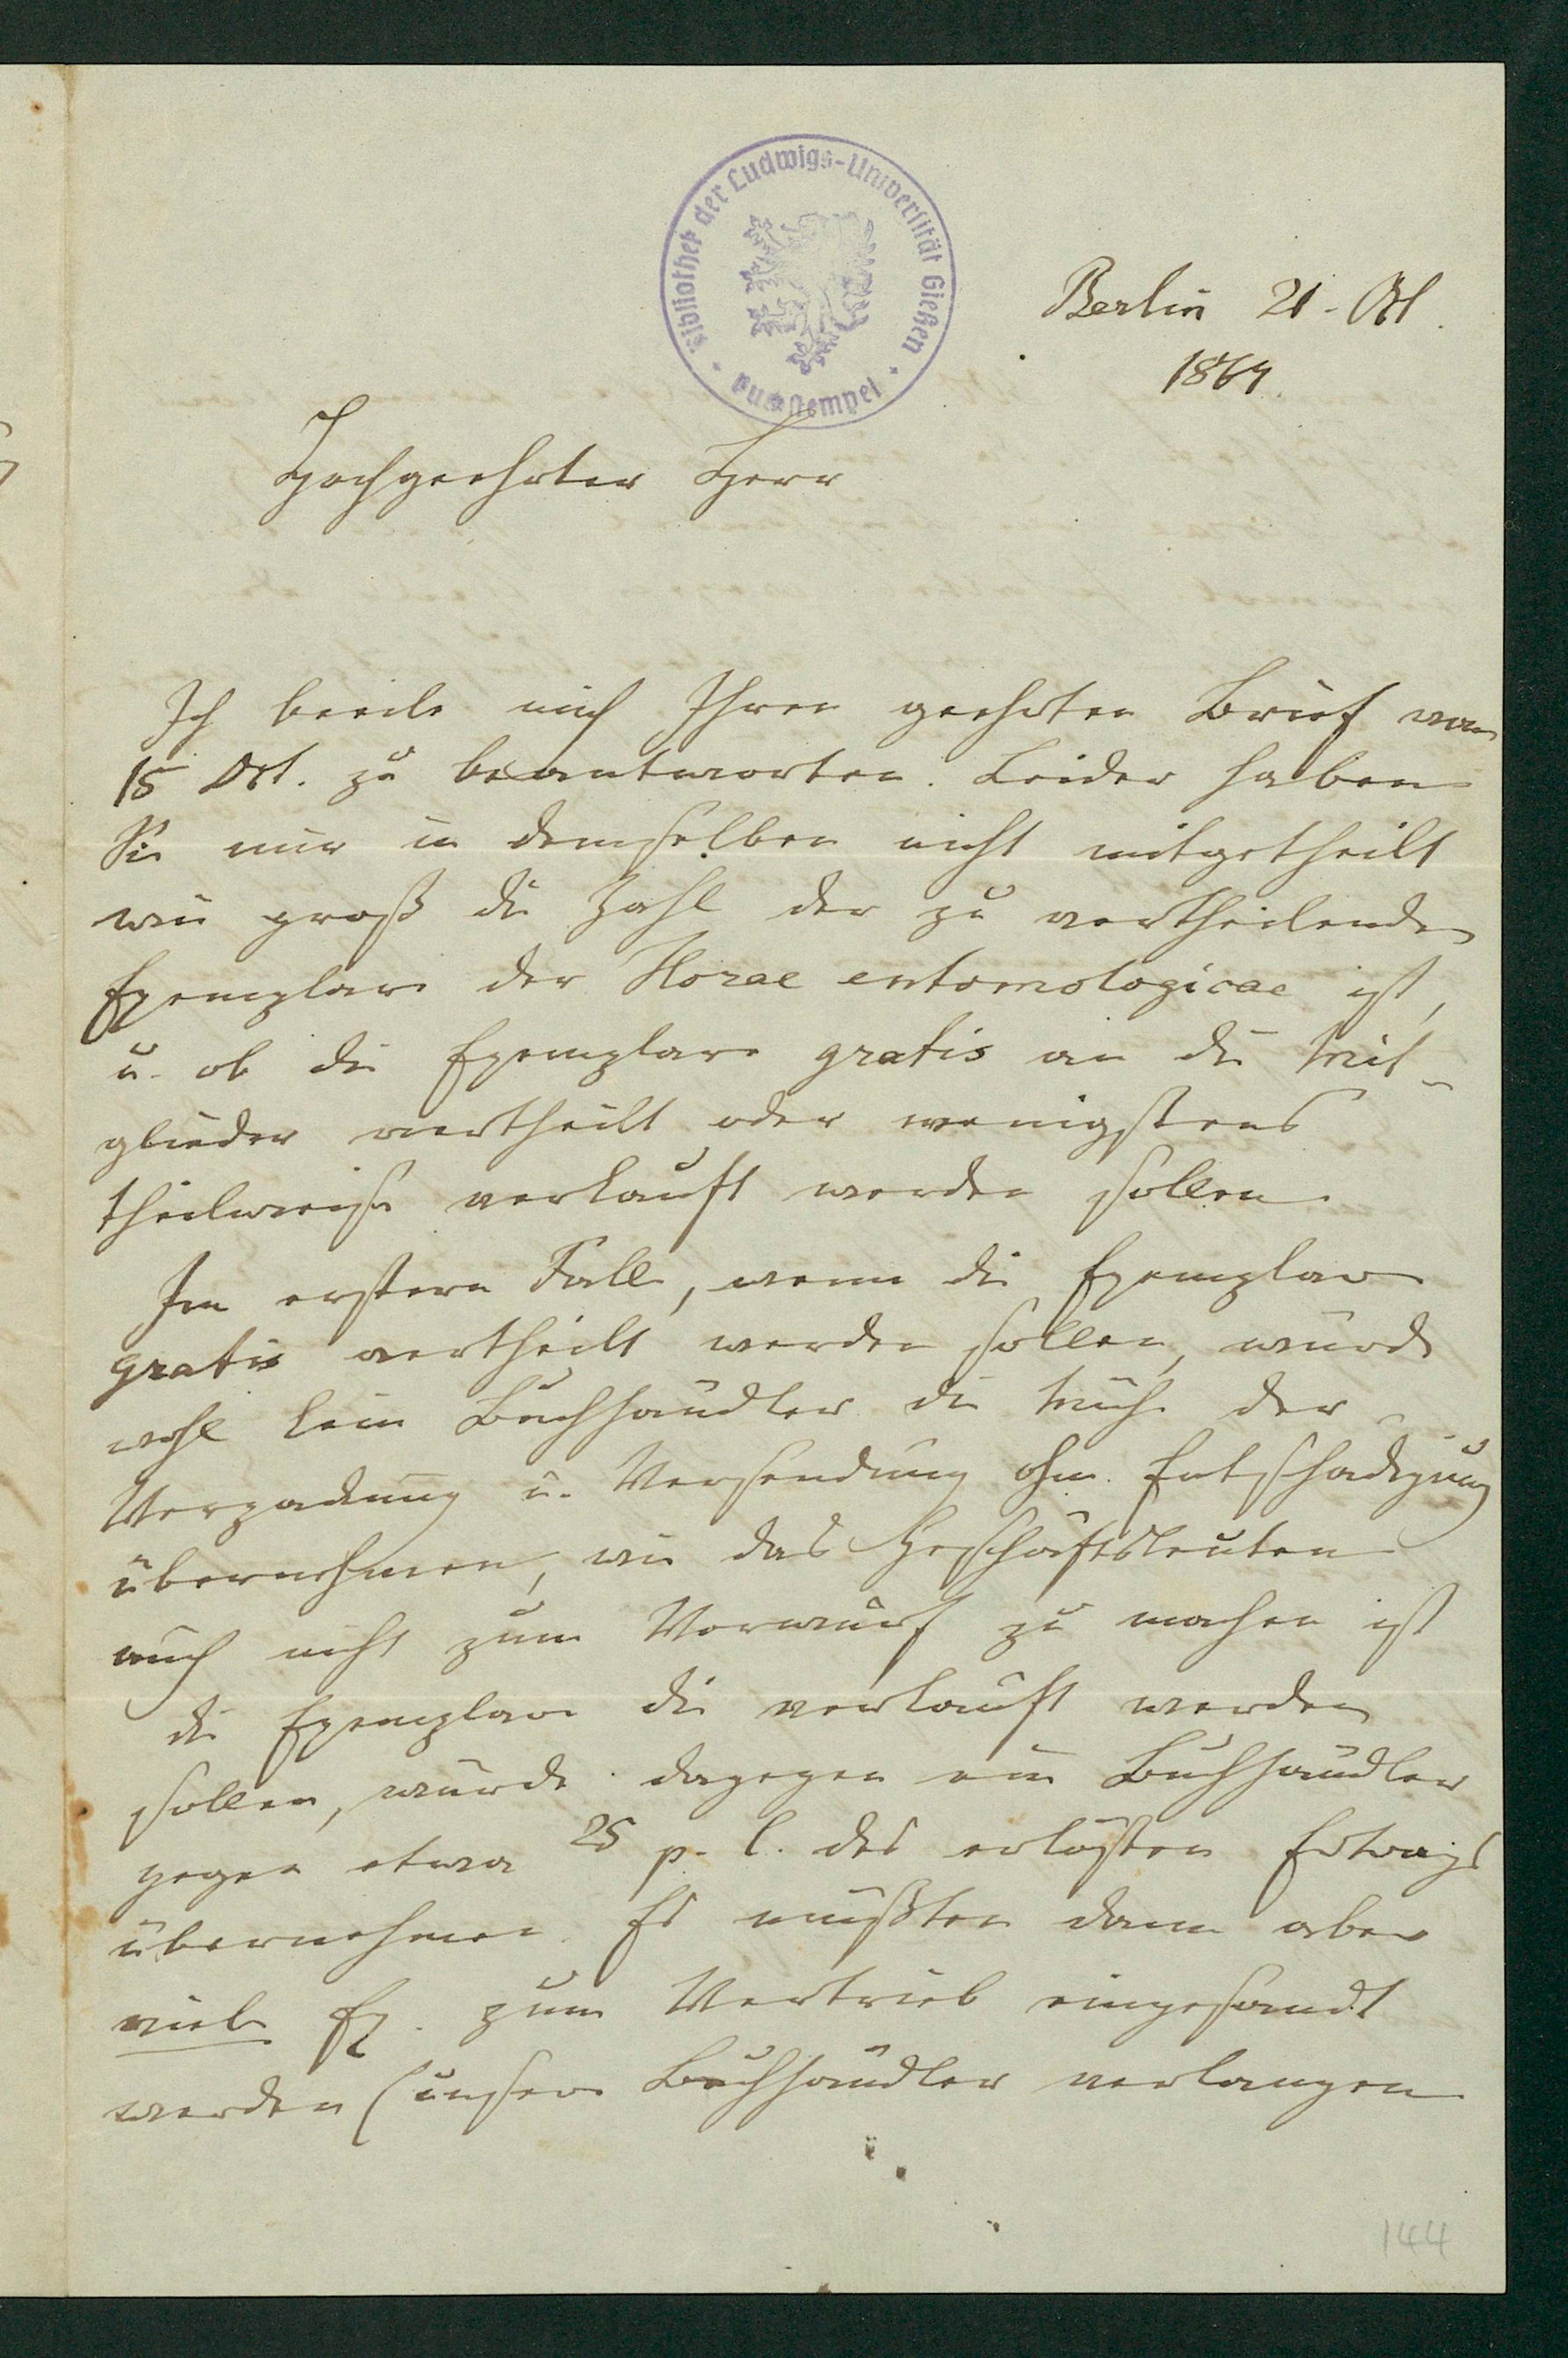 Bibliothek der Ludwigs-Universität Gießen
Buchstempel
Berlin 21. Okt.
1864.
Hochgeehrter Herr
Ich beeile mich Ihren geehrten Brief vom
15 Okt. zu beantworten. Leider haben
Sie mir in demselben nicht mitgetheilt
wie groß die Zahl der zu vertheilenden
Exemplare der Horae entomologicae ist,
u. ob die Exemplare gratis an die Mit-
glieder vertheilt oder wenigstens
theilweise verkauft werden sollen.
Im erstern Falle, wenn die Exemplare
gratis vertheilt werden sollen, würde
wohl kein Buchhändler die Mühe der
Verpackung u. Versendung ohne Entschädigung
übernehmen, wie das Geschäftsleuten
auch nicht zum Vorwurf zu machen ist
die Exemplare die verkauft werden
sollen, würde dagegen ein Buchhändler
gegen etwa 25 p. C. des erlösten Ertrags
übernehmen. Es müßten dann aber
viele Ex. zum Vertrieb eingesandt
werden (unsere Buchhändler verlangen
144